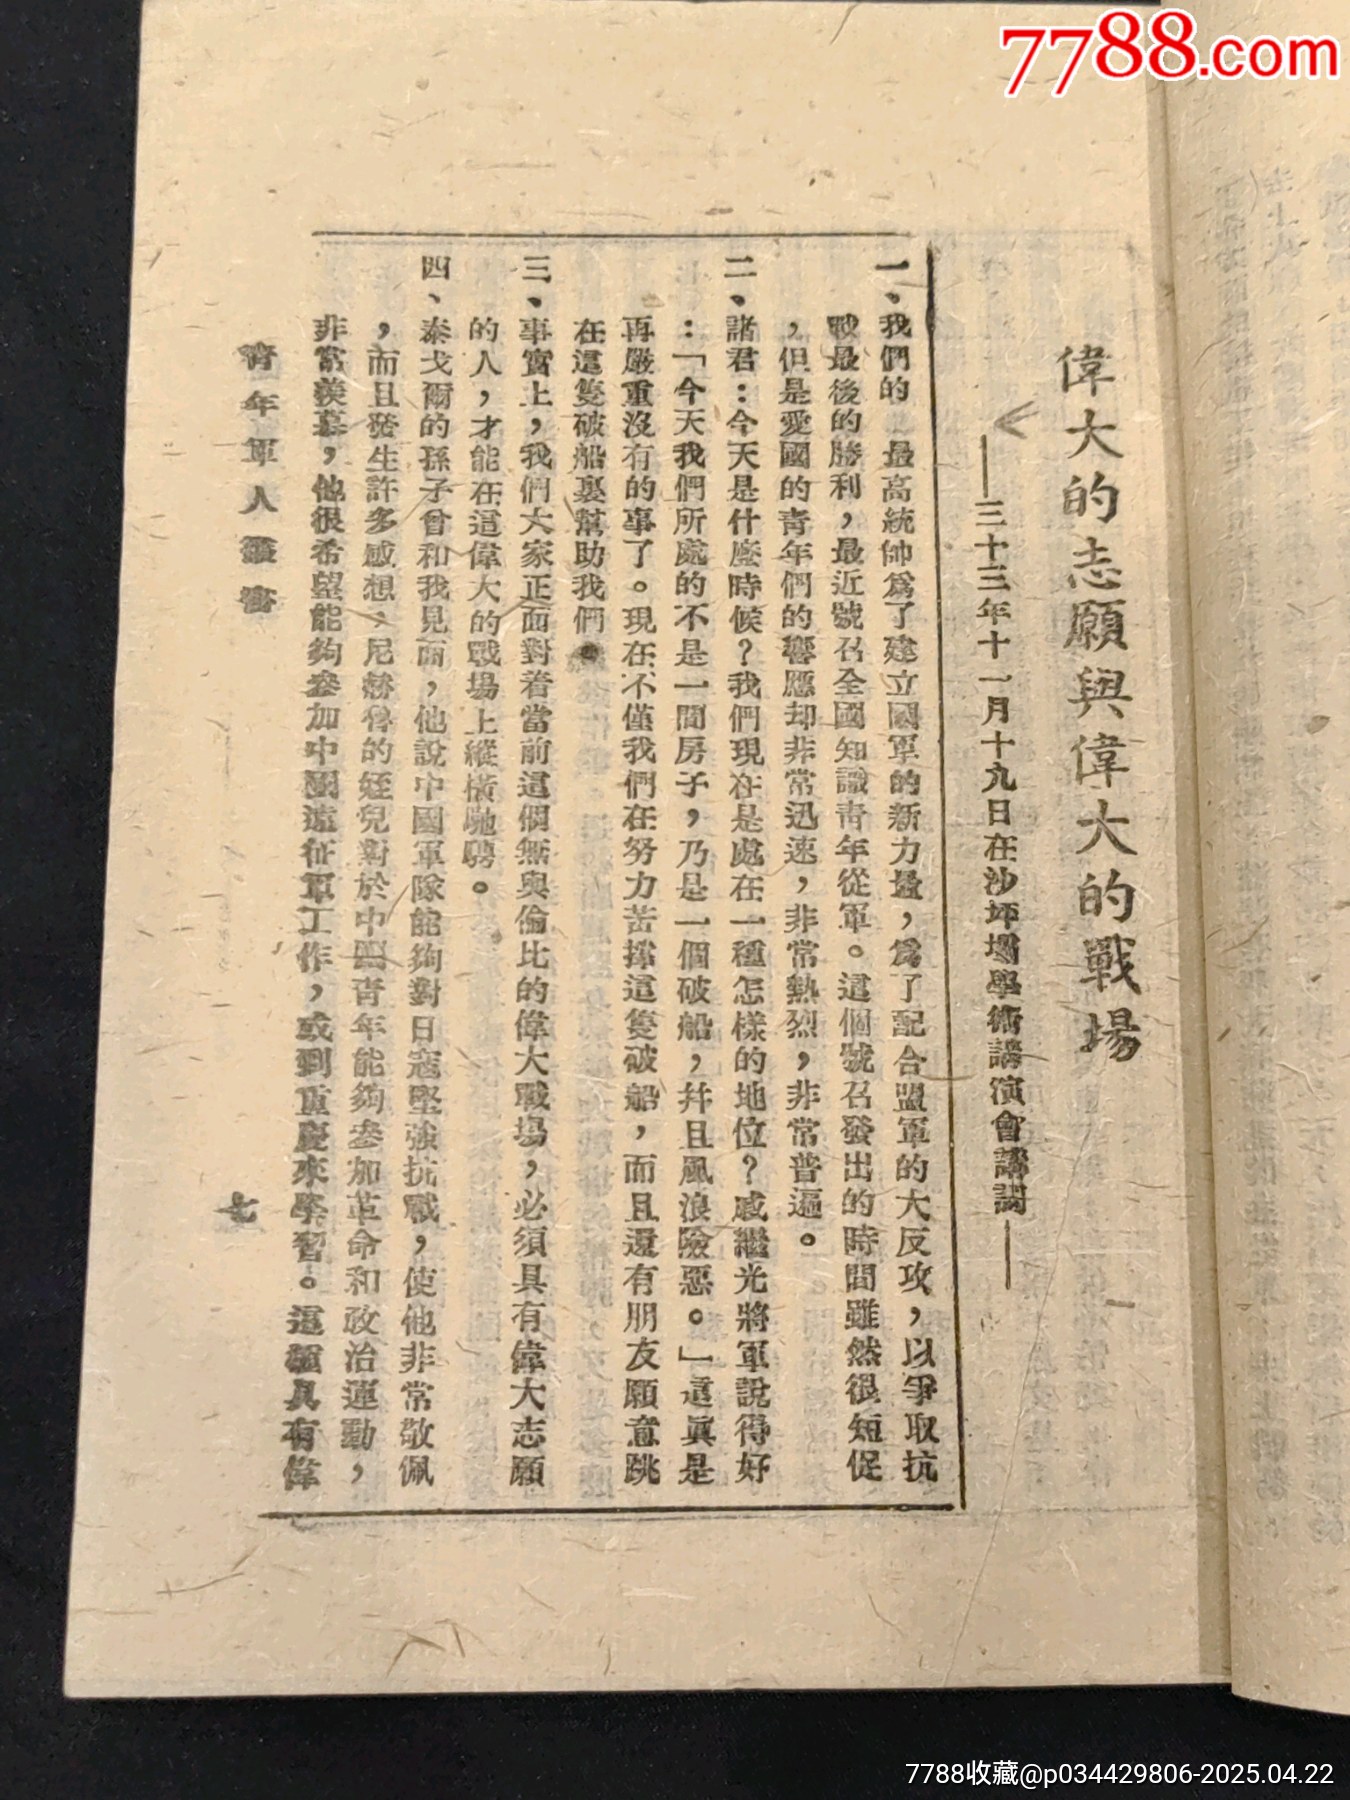 7788.com
偉大的志願與偉大的戰場
——三十三年十一月十九日在沙坪壩學術講演會講詞——
一、我們的 最高統帥爲了建立國軍的新力量，爲了配合盟軍的大反攻，以爭取抗
戰最後的勝利，最近號召全國知識青年從軍。這個號召發出的時間雖然很短促
，但是愛國的青年們的響應却非常迅速，非常熱烈，非常普遍。
二、諸君：今天是什麼時候？我們現在是處在一種怎樣的地位？戚繼光將軍說得好
：「今天我們所處的不是一間房子，乃是一個破船，幷且風浪險惡。」這眞是
再嚴重沒有的事了。現在不僅我們在努力苦撑這隻破船，而且還有朋友願意跳
在這隻破船裏幫助我們。
三、事實上，我們大家正面對着當前這個無與倫比的偉大戰場，必須具有偉大志願
的人，才能在這偉大的戰場上縱橫馳騁。
四、泰戈爾的孫子曾和我見面，他說中國軍隊能夠對日寇堅強抗戰，使他非常敬佩
，而且發生許多感想，尼赫魯的姪兒對於中國青年能夠參加革命和政治運動，
非常羨慕，他很希望能夠參加中國遠征軍工作，或到重慶來學習。這種具有偉
青年軍人叢書
七
7788收藏@p034429806-2025.04.22